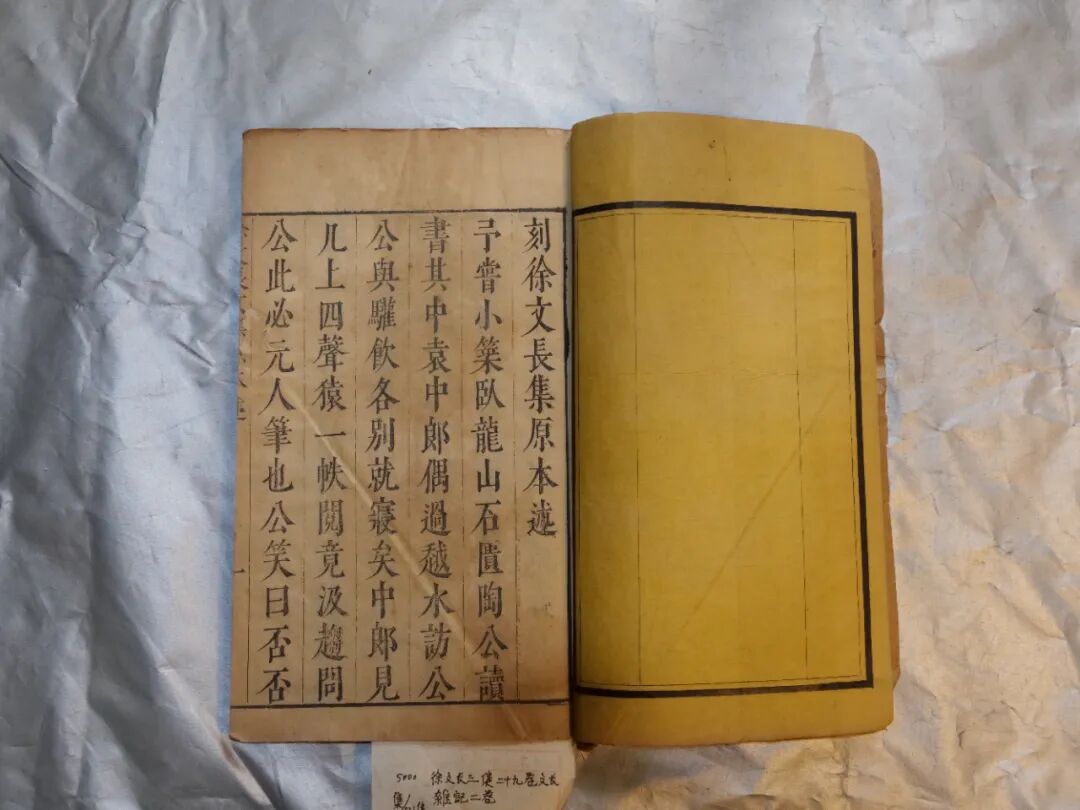 刻徐文長集原本述
予嘗小築臥龍山石匱陶公讀
書其中袁中郎偶過越水訪公
公與驩飲各別就寢矣中郎見
几上四聲猿一帙閱竟汲趨問
公此必元人筆也公笑曰否否
一
5000
徐文長三集二十九卷文長
雜記二卷